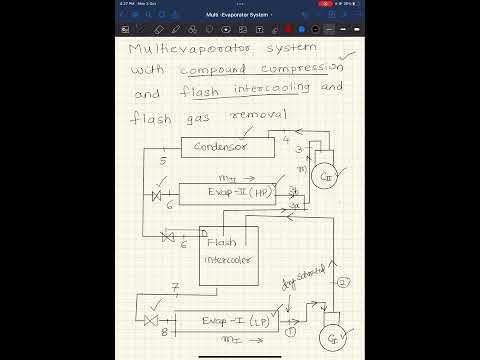 4:27 PM Mon 3 Oct
29%
Multi -Evaporator System
Multievaporator system
with compound compression
and flash intercooling and
flash gas removal
4
Condensor
5
3
CII
m
mII →
Evap-II (HP)
6
3b
3a
6
Flash
intercooler
7
dry saturated
2
Evap-I (LP)
8
1
mI →
CI